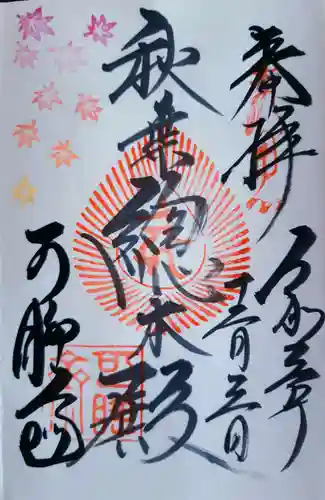 奉拝
令和三年
月三日
秋葉總本殿
可睡斎